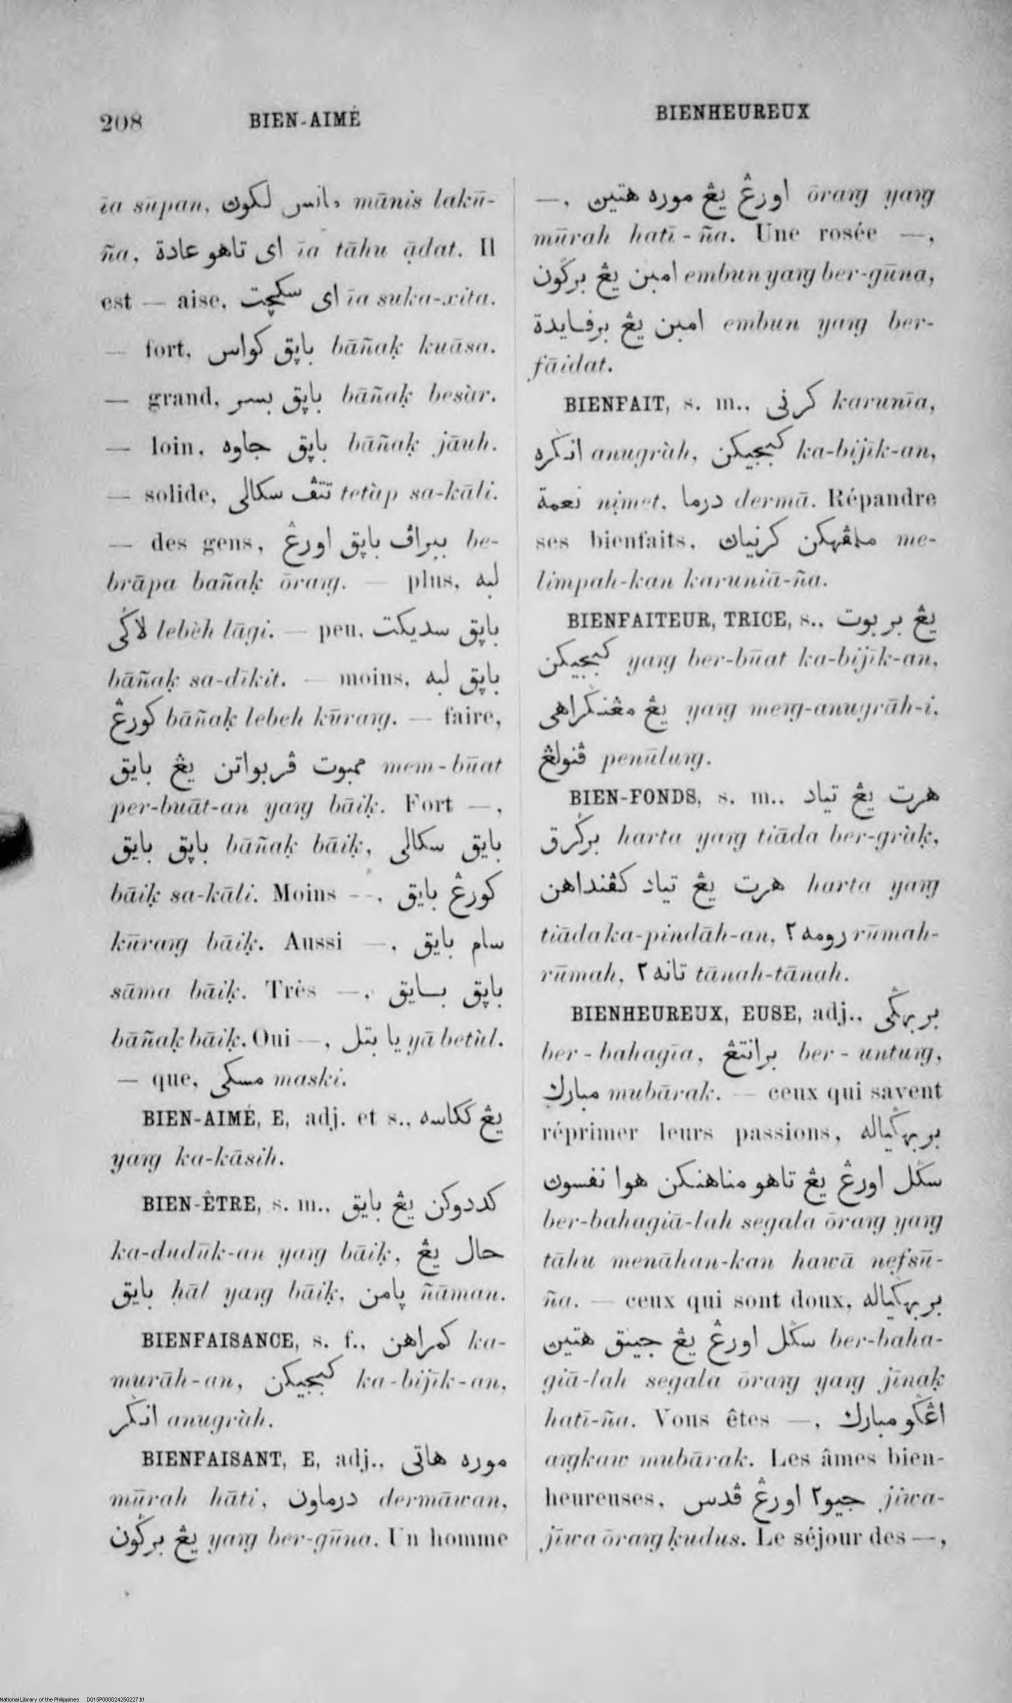 208 BIEN-AIMÉ BIENHEUREUX
īa sūpan, مانس لكون mānis lakū-
ña, اى تاهو عادة īa tāhu ạ̄dat. Il
est — aise, اى سكچت īa suka-xita.
— fort, باڽق كواس bāñaḳ kuāsa.
— grand, باڽق بسر bāñaḳ besàr.
— loin, باڽق جاوه bāñaḳ jāuh.
— solide, تتڤ سكالى tetàp sa-kāli.
— des gens, ببراڤ باڽق اورڠ be-
brāpa bañaḳ ōrarŋ. — plus, لبه
باڽق لاݢى lebèh lāgi. — peu, باڽق سديكت
bāñaḳ sa-dīkit. — moins, باڽق لبه
كورڠ bāñaḳ lebeh kūrarŋ. — faire,
ممبوت ڤربواتن يڠ بايق mem-būat
per-buāt-an yarŋ bāiḳ. Fort —,
باڽق بايق bāñaḳ bāiḳ, بايق سكالى
bāiḳ sa-kāli. Moins —, كورڠ بايق
kūrarŋ bāiḳ. Aussi —, سام بايق
sāma bāiḳ. Très —, باڽق بايق
bāñaḳ bāiḳ. Oui —, يا بتل yā betùl.
— que, مسكى maski.
BIEN-AIMÉ, E, adj. et s., يڠ ككاسه
yarŋ ka-kāsih.
BIEN-ÊTRE, s. m., كددوكن يڠ بايق
ka-dudūk-an yarŋ bāiḳ, حال يڠ
بايق ḥāl yarŋ bāiḳ, ڽامن ñāman.
BIENFAISANCE, s. f., كمراهن ka-
murāh-an, كبجيكن ka-bijīk-an,
انݢر anugràh.
BIENFAISANT, E, adj., موره هاتى
mūrah hāti, درماون dermāwan,
يڠ برݢون yarŋ ber-gūna. Un homme
—, اورڠ يڠ موره هتين ōrarŋ yarŋ
mūrah hatī-ña. Une rosée —,
امبن يڠ برݢون embun yarŋ ber-gūna,
امبن يڠ برفايدة embun yarŋ ber-
fāidat.
BIENFAIT, s. m., كرنى karunīa,
انݢره anugràh, كبجيكن ka-bijīk-an,
نعمة nịmet, درما dermā. Répandre
ses bienfaits, ملمڤهكن كرنيان me-
limpah-kan karuniā-ña.
BIENFAITEUR, TRICE, s., يڠ بربوت
كبجيكن yarŋ ber-būat ka-bijīk-an,
يڠ مڠنݢراهى yarŋ merŋ-anugrāh-i,
ڤنولڠ penūlurŋ.
BIEN-FONDS, s. m., هرت يڠ تياد
برݢرق harta yarŋ tiāda ber-gràḳ,
هرت يڠ تياد كڤنداهن harta yarŋ
tiāda ka-pindāh-an, رومه٢ rūmah-
rūmah, تانه٢ tānah-tānah.
BIENHEUREUX, EUSE, adj., بربهݢى
ber-bahagīa, برانتڠ ber-unturŋ,
مبارك mubārak. — ceux qui savent
réprimer leurs passions, بربهݢياله
سݢل اورڠ يڠ تاهو مناهنكن هوا نفسون
ber-bahagiā-lah segala ōrarŋ yarŋ
tāhu menāhan-kan hawā nefsū-
ña. — ceux qui sont doux, بربهݢياله
سݢل اورڠ يڠ جينق هتين ber-baha-
giā-lah segala ōrarŋ yarŋ jīnaḳ
hatī-ña. Vous êtes —, اڠكو مبارك
arŋkaw mubārak. Les âmes bien-
heureuses, جيو٢ اورڠ قدس jīwa-
jīwa ōrarŋ ḳudus. Le séjour des —,
National Library of the Philippines